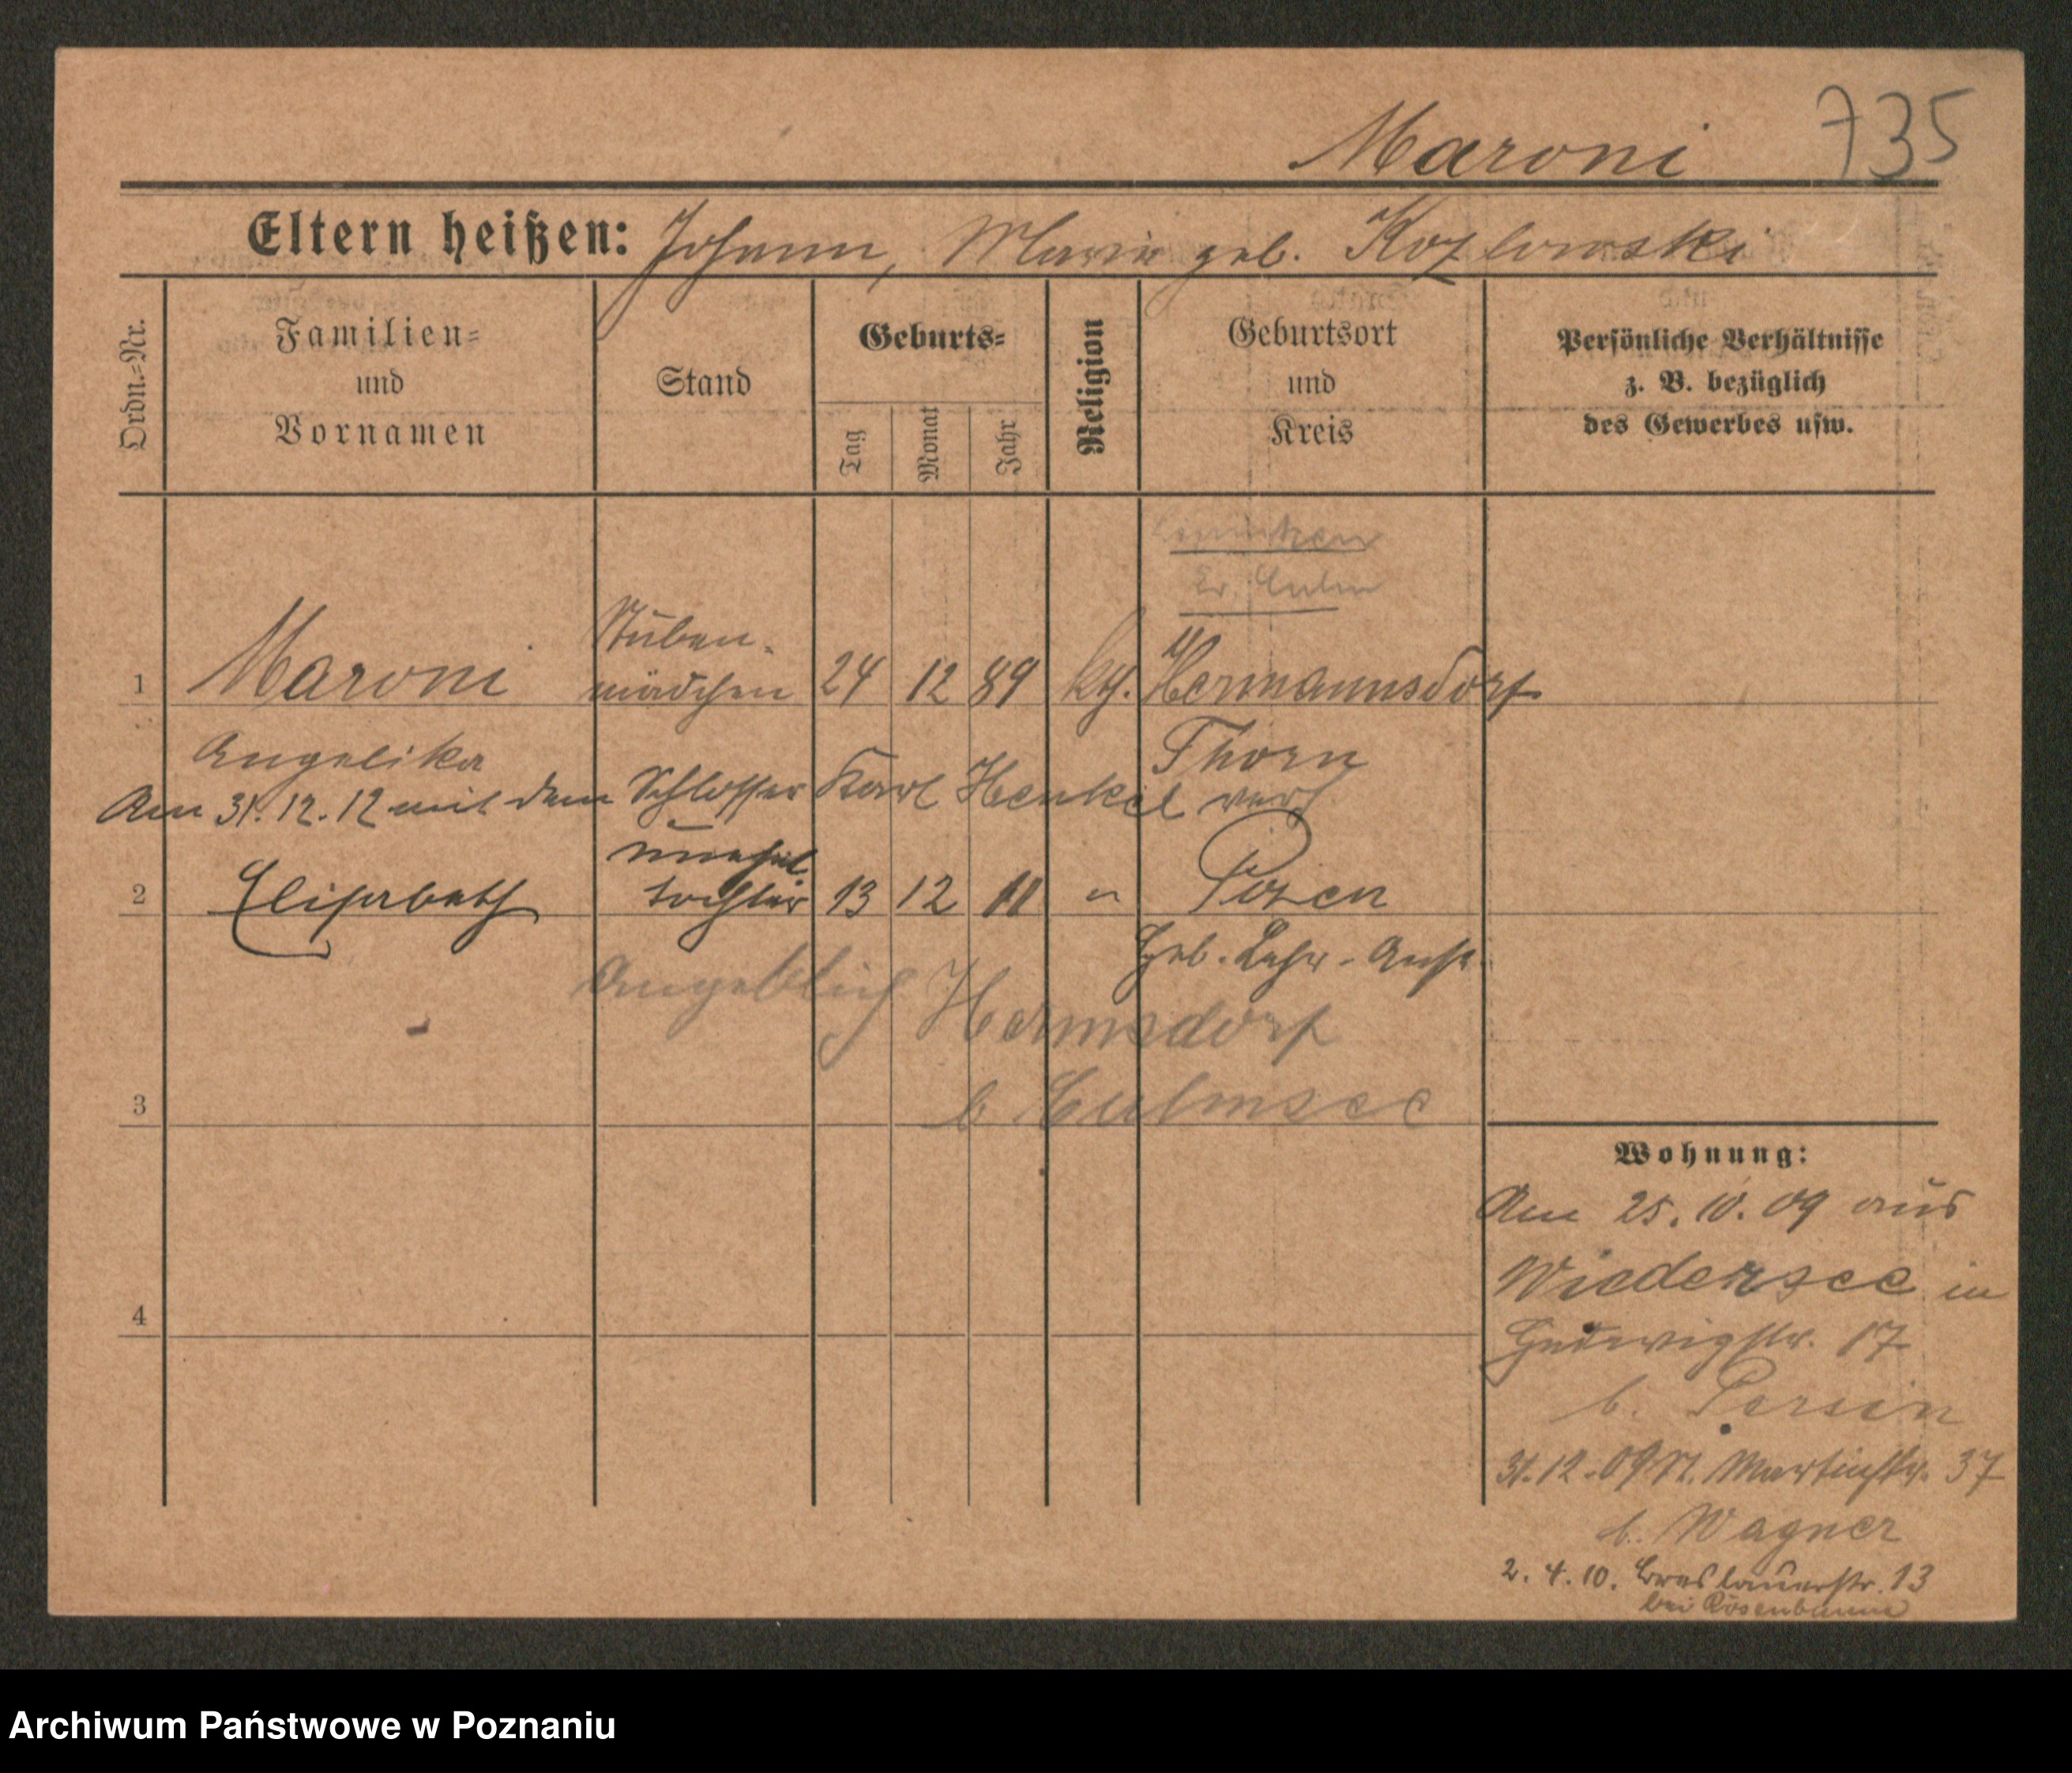 Maroni 735
Eltern heißen: Johann, Marie geb. Kozlowski
Ordn.=Nr.
Familien=
und
Vornamen
Stand
Geburts=
Tag
Monat
Jahr
Religion
Geburtsort
und
Kreis
Persönliche Verhältnisse
z. B. bezüglich
des Gewerbes usw.
Kr. Culm
Stuben-
1 Maroni mädchen 24 12 89 kth. Hermannsdorf
Angelika Thorn
Am 31.12.12 mit dem Schlosser Karl Henkel verh
unehel.
2 Elisabeth tochter 13 12 11 " Posen
Heb. Lehr-Anst.
Angeblich Hermsdorf
3 b Culmsee
4
Wohnung:
Am 25.10.09 aus
Wiedersee in
Hedwigstr. 17
b.
31.12.09 St. Martinstr. 37
b. Wagner
2.4.10. Breslauerstr. 13
bei Rosenbaum
Archiwum Państwowe w Poznaniu